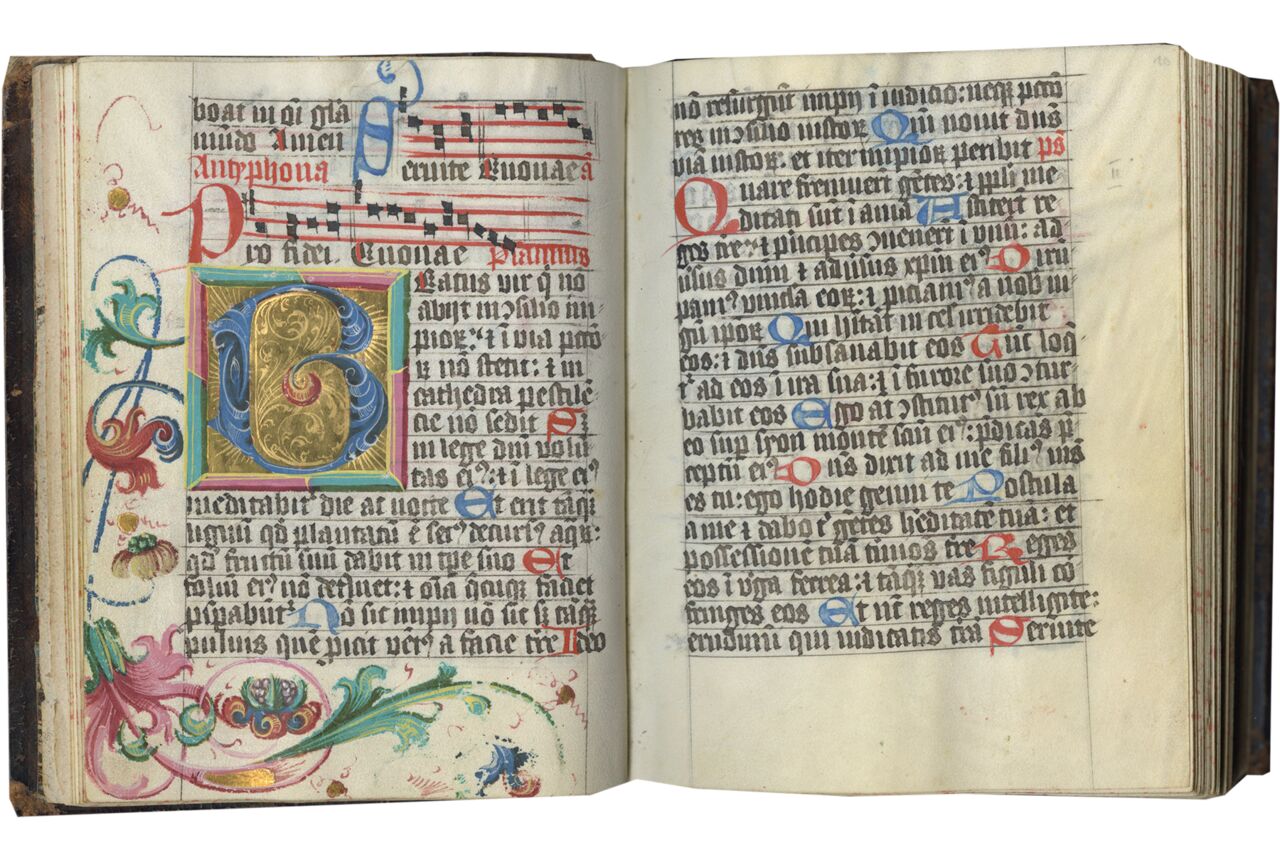 boat in oi gla
mudo Amen
Antyphona
Seruite Euouae ā
Pro fidei Euouae Psalmus
Beatus vir q̄ no
abijt in ↄsilio im
pioꝝ: ⁊ ī via pctō
ꝝ nō stetit: ⁊ in
cathedra pestilē
cie nō sedit S;
in lege dnī volū
tas eiꝰ: ⁊ ī lege eiꝰ
meditabit᷑ die ac nocte Et erit tāqꝫ
lignū qd̄ plantatū ē secꝰ decursꝰ aqꝝ:
qd̄ fructū suū dabit in tp̄e suo Et
foliū eiꝰ nō defluet: ⁊ oīa q̄cūqꝫ faciet
ꝓspabūt᷑ Nō sic impij nō sic sꝫ tāqꝫ
puluis quē ꝓicit vētꝰ a facie tr̄e Ideo
nō resurgūt impij ī iudicio: neqꝫ pctō
res in ↄsilio iustoꝝ Qm̄ nouit dn̄s
viā iustoꝝ: et iter impioꝝ peribit ps̄
Quare fremuerт gētes: ⁊ ppl̄i me
ditati sūt īania Astiterт re
ges tr̄e: ⁊ pn̄cipes ↄuenerт ī vnū: ad
uīsus dnm̄ ⁊ aduīsus xpm̄ eiꝰ Diru
pamꝰ vincla eoꝝ: ⁊ ꝓiciamꝰ a nob iu
gū ipoꝝ Qui hītat in cel̄ irridebit
eos: ⁊ dn̄s subsanabit eos Tūc loq̄
t᷑ ad eos ī ira sua: ⁊ ī furore suo ↄtur
babit eos Ego aūt ↄstitutꝰ sū rex ab
eo sup syon montē sctm̄ eiꝰ: p̄dicās p̄
ceptū eiꝰ Dn̄s dixit ad me filiꝰ meꝰ
es tu: ego hodie genui te Postula
a me ⁊ dabo t̄ gētes h̄editatē tuā: et
possessionē tuā t̄minos tr̄e Reges
eos ī v̄ga ferrea: ⁊ tāqꝫ vas figuli cō
fringes eos Et nūc reges intelligite:
erudimī qui iudicatis trā Seruite